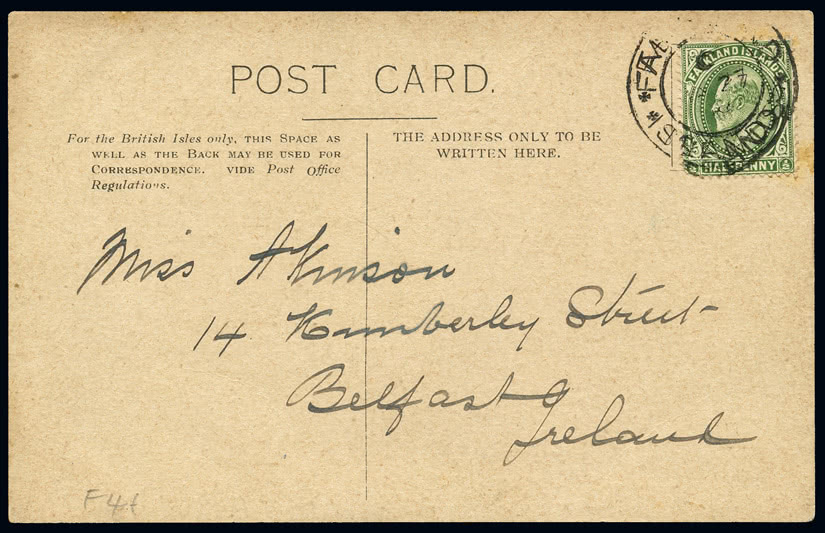 POST CARD.
For the British Isles only, THIS SPACE AS
WELL AS THE BACK MAY BE USED FOR
CORRESPONDENCE. VIDE Post Office
Regulations.
THE ADDRESS ONLY TO BE
WRITTEN HERE.
FALKLAND ISLANDS
HALFPENNY
FALKLAND ISLANDS
27
Miss Atkinson
14 Kimberley Street
Belfast
Ireland
F4t